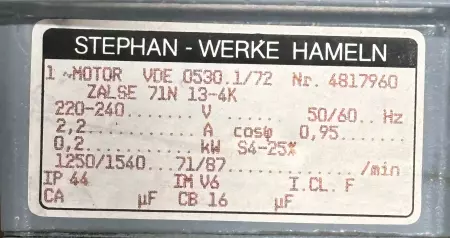 STEPHAN - WERKE HAMELN
1 ~MOTOR VDE 0530.1/72 Nr. 4817960
ZALSE 71N 13-4K
220-240........V........50/60.. Hz
2,2..........A cosφ 0,95......
0,2..........kW S4-25%
1250/1540...71/87............/min
IP 44 IM V6 I.CL. F
CA µF CB 16 µF